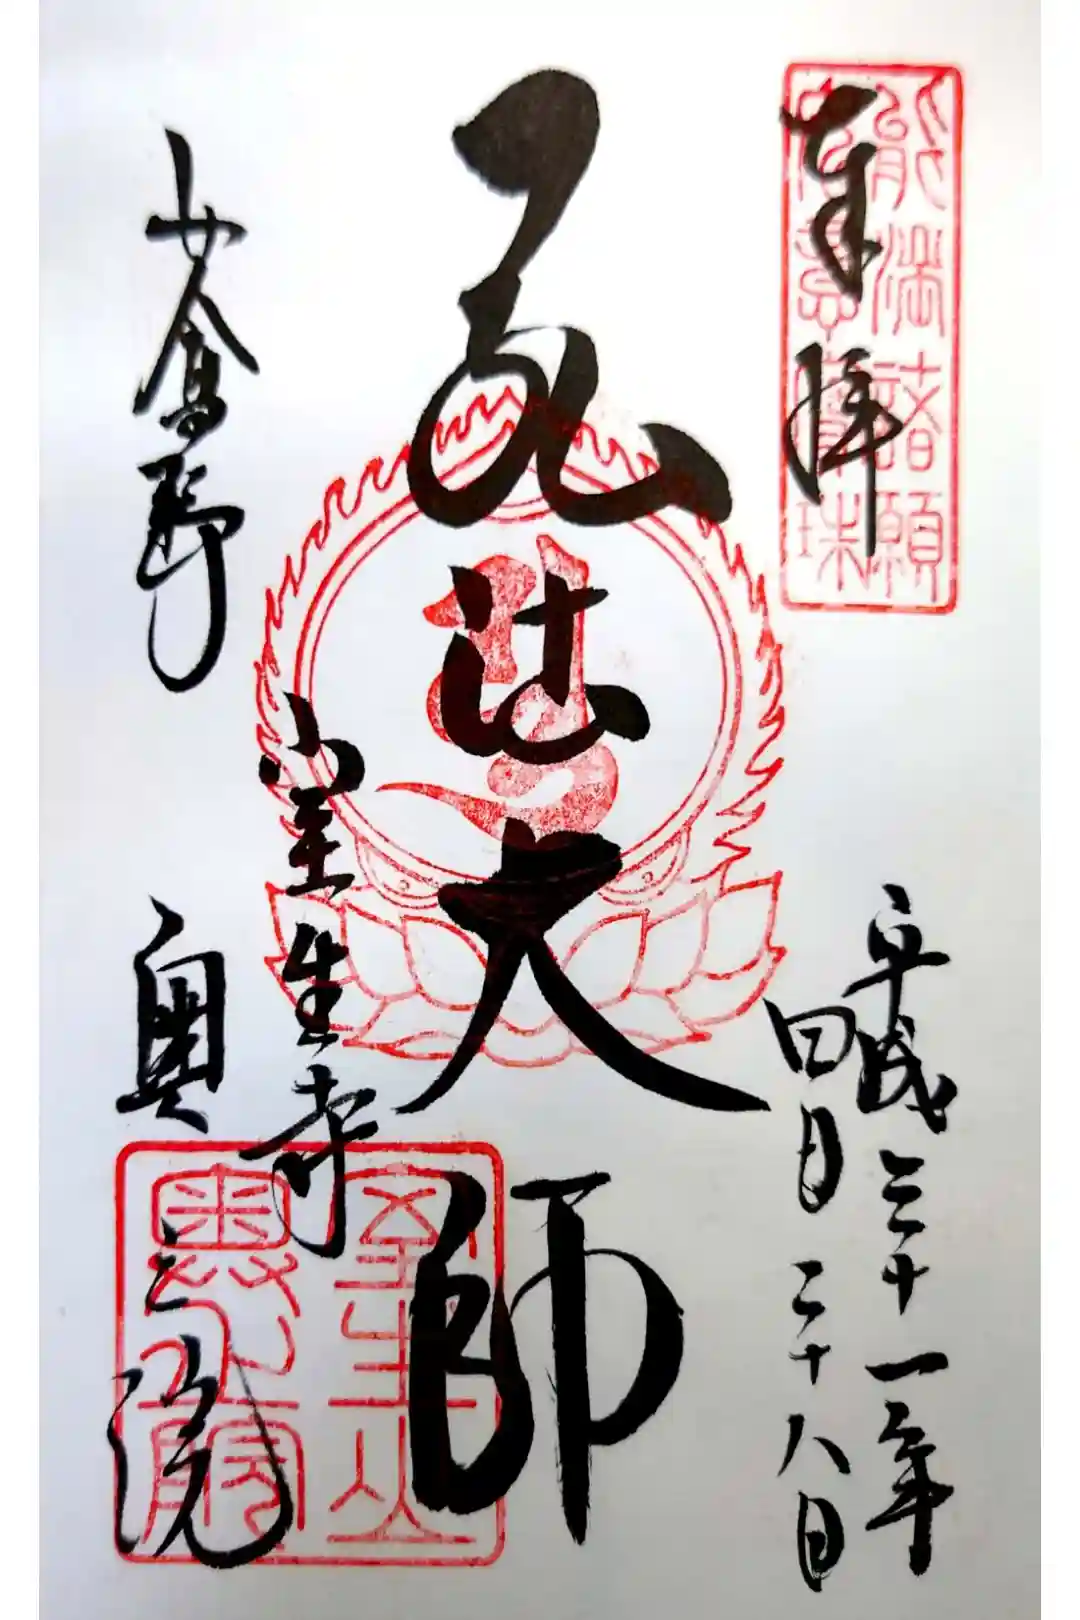 奉拝
能満諸願
如意寶珠
平成三十一年
四月二十八日
弘法大師
室生寺
女人高野
奥之院
室生山